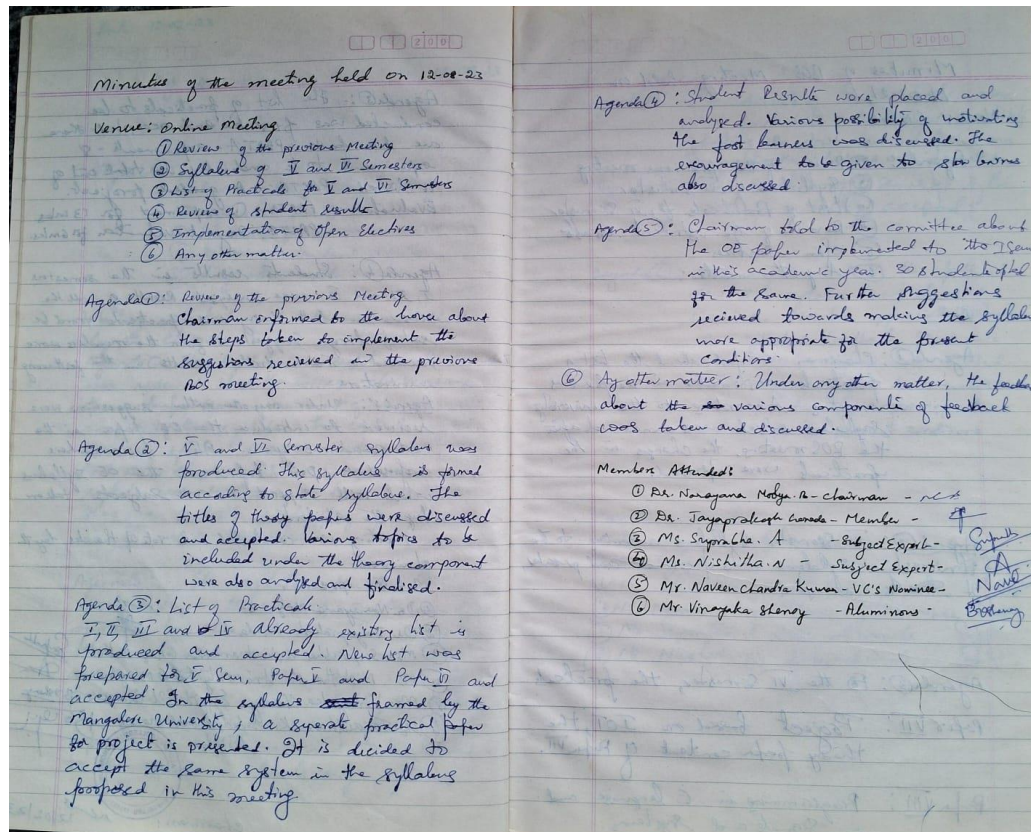 Minutes of the meeting held on 12-08-23
Venue: Online Meeting
① Review of the previous Meeting
② Syllabus of V and VI Semesters
③ List of Practicals for V and VI Semesters
④ Review of student results
⑤ Implementation of Open Electives
⑥ Any other matter.
Agenda ①: Review of the previous Meeting
Chairman informed to the house about
the steps taken to implement the
suggestions recieved in the previous
BOS meeting.
Agenda ②: V and VI Semester syllabus was
produced. This syllabus is formed
according to state syllabus. The
titles of theory papers were discussed
and accepted. Various topics to be
included under the theory component
were also analysed and finalised.
Agenda ③: List of Practicals
I, II, III and IV already existing list is
produced and accepted. New list was
prepared for V Sem, Paper V and Paper VI and
accepted In the syllabus framed by the
Mangalore University, a seperate practical paper
for project is presented. It is decided to
accept the same system in the syllabus
proposed in this meeting.
Agenda ④: Student Results were placed and
analysed. Various possibility of motivating
the fast learners was discussed. The
encouragement to be given to slow learners
also discussed.
Agenda ⑤: Chairman told to the committee about
the OE paper implemented to the I Sem
in this academic year. 30 students opted
for the same. Further suggestions
recieved towards making the syllabus
more appropriate for the present
conditions.
⑥ Any other matter: Under any other matter, the feedback
about the various components of feedback
was taken and discussed.
Members Attended:
① Dr. Narayana B - Chairman -
② Dr. Jayaprakash - Member -
③ Ms. Suprabha. A - Subject Expert -
④ Ms. Nishitha. N - Subject Expert -
⑤ Mr. Naveen Chandra Kumar - VC's Nominee -
⑥ Mr Vinayaka Shenoy - Aluminous -